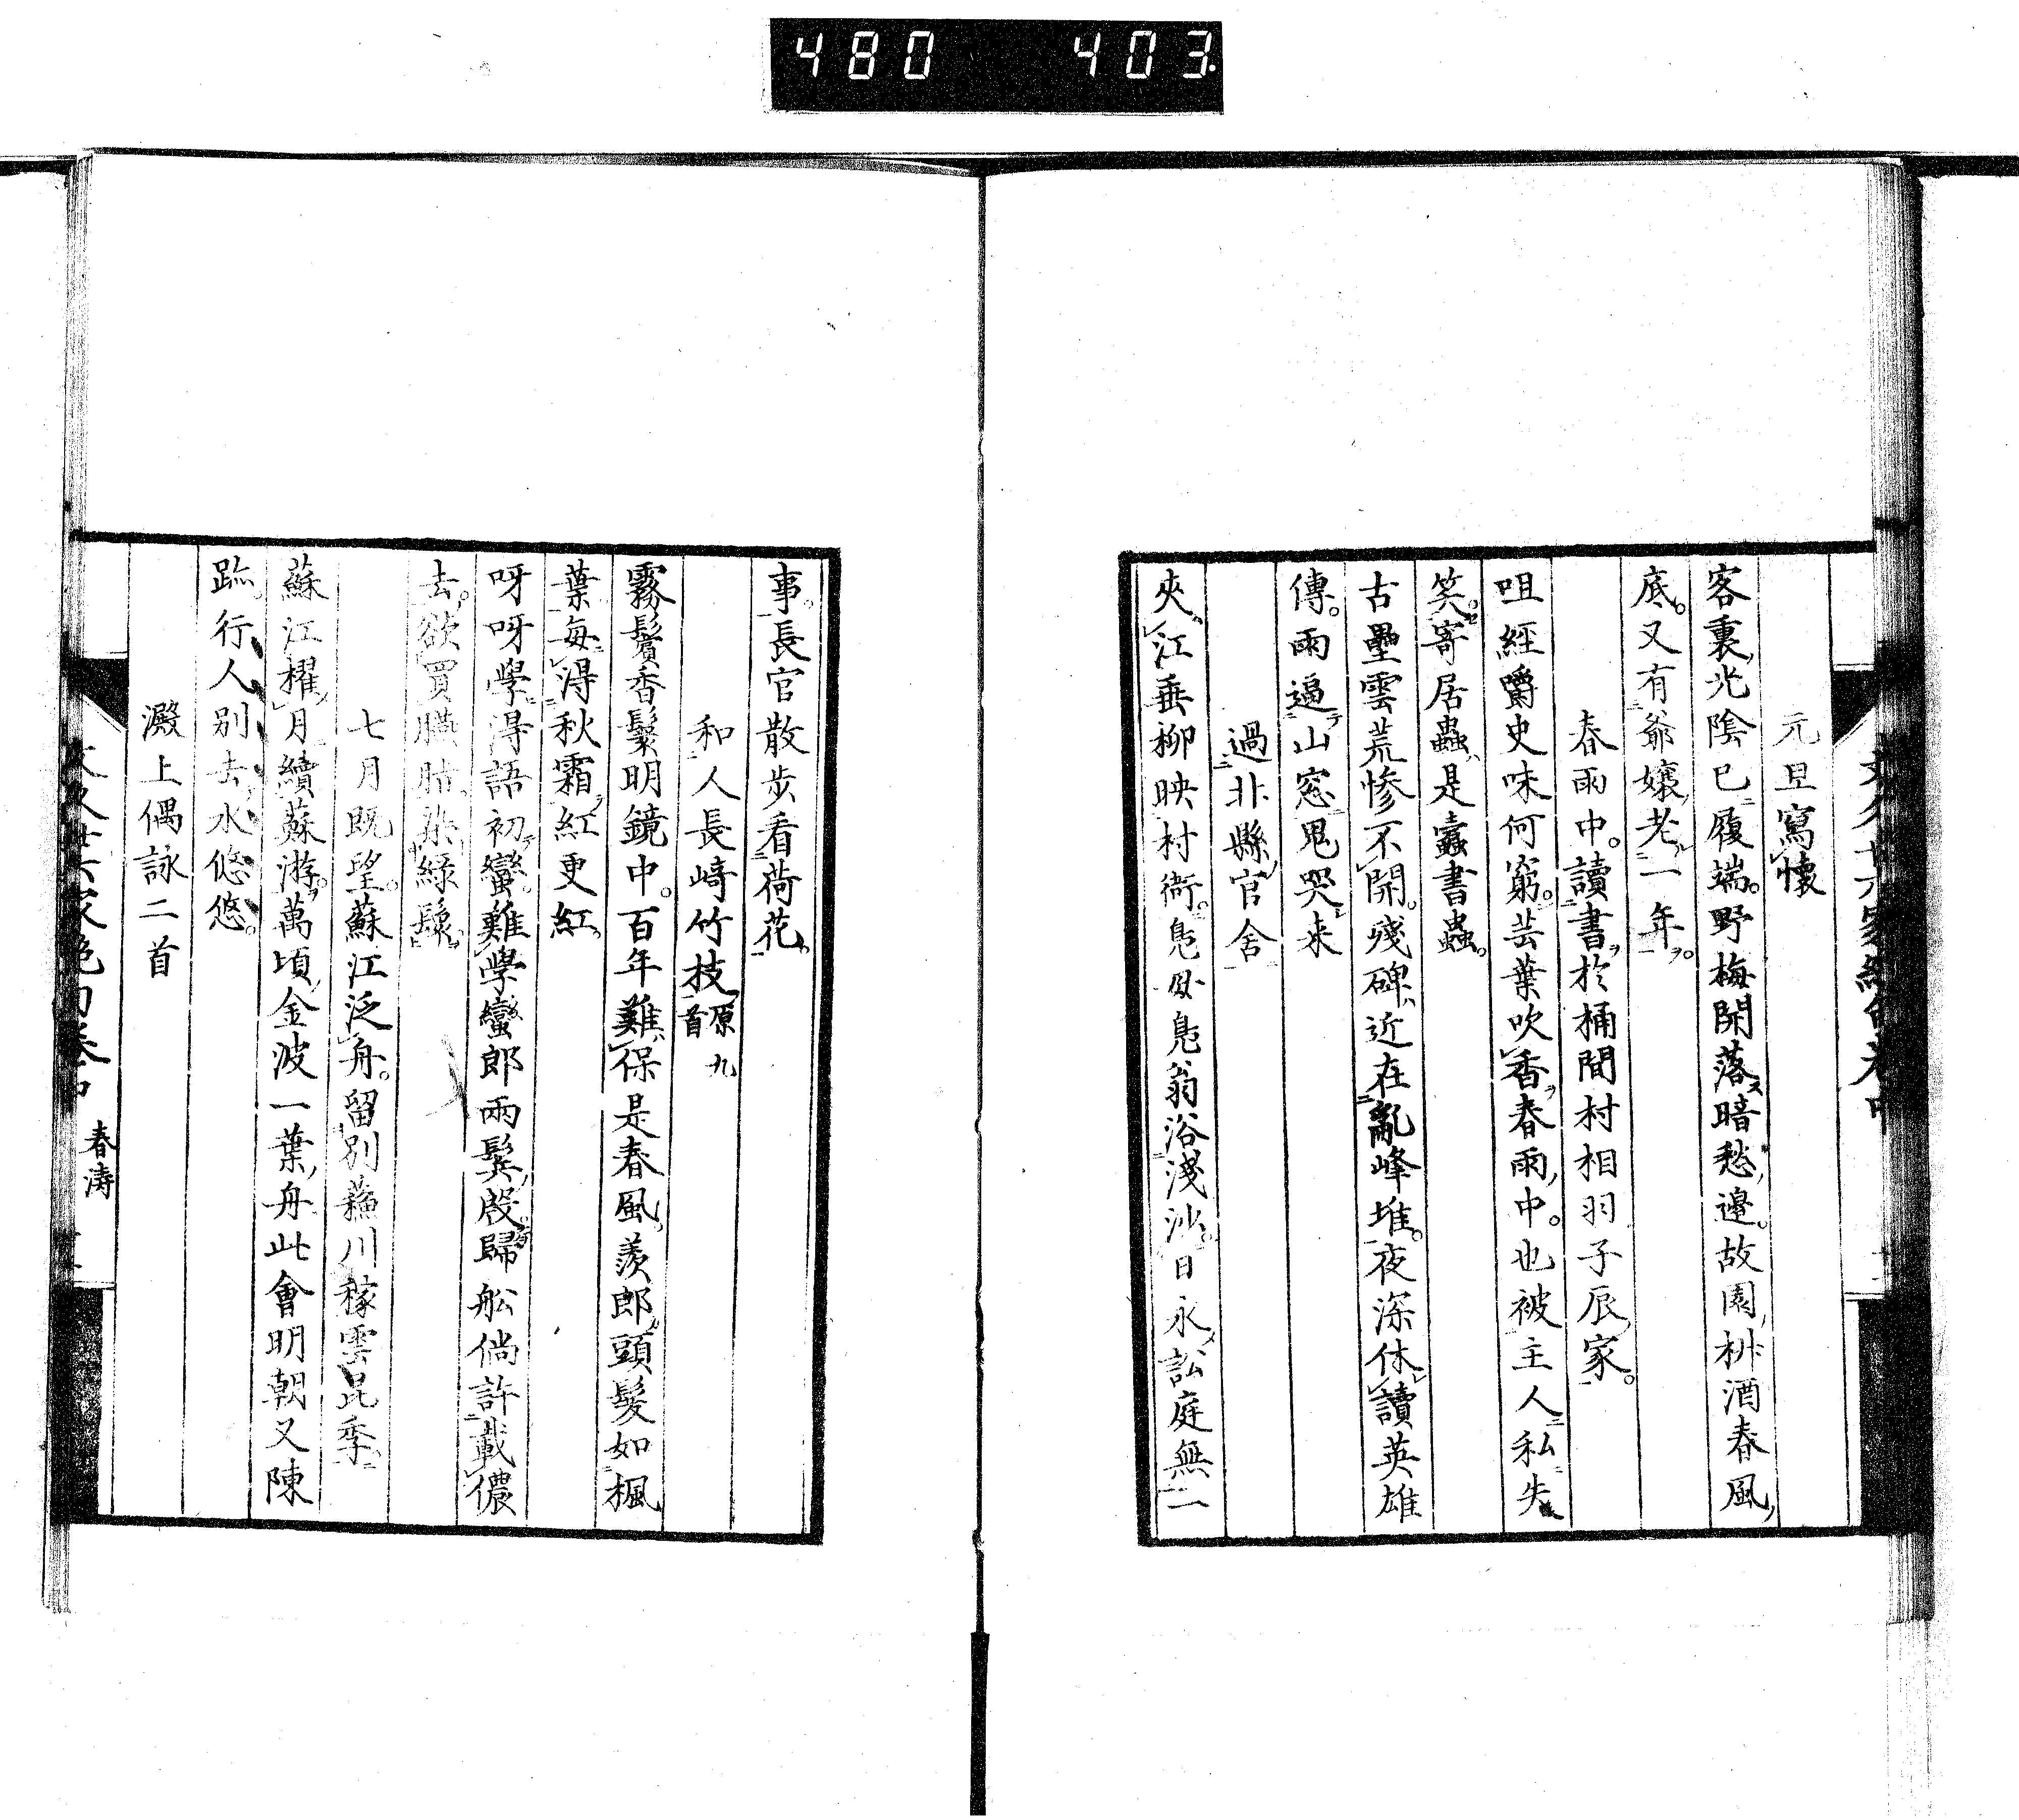 480 403.
元旦寫懷
客裏光陰已履端。野梅開落暗愁邊。故園栁酒春風
底。又有爺孃老一年。
春雨中。讀書於桶間村相羽子辰家。
咀經嚼史味何窮。芸葉吹香春雨中。也被主人私失
笑。寄居蟲是蠹書蟲。
古壘雲荒慘不開。殘碑近在亂峰堆。夜深休讀英雄
傳。雨逼山窓鬼哭来
過北縣官舍
夾江垂柳映村衙。鳧母鳧翁浴淺沙。日永訟庭無一
事。長官散步看荷花。
和人長﨑竹枝 原九首
霧鬢香鬟明鏡中。百年難保是春風。羨郎頭髮如楓
葉。每得秋霜紅更紅。
呀呀學得語初蠻。難學蠻郎兩鬂殷。歸舩倘許載儂
去。欲買臙脂染綠鬟。
七月既望。蘇江泛舟。留別蘓川稼雲昆季
蘇江櫂月續蘇游。萬頃金波一葉舟。此會明朝又陳
跡。行人別去水悠悠。
澱上偶詠二首
春濤